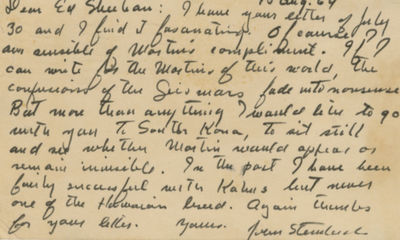 10 Aug. 64
Dear Ed Sheehan: I have your letter of July
30 and I find it fascinating. Of course I
am sensible of Martin's compliment. If I
can write for the Martins of this world, the
confusions of the fade into nonsense
But more than anything I would like to go
with you to South Kona, to sit still
and see whether Martin would appear or
remain invisible. In the past I have been
fairly successful with Kahus but never
one of the Hawaiian breed. Again thanks
for your letter. Yours. John Steinbeck